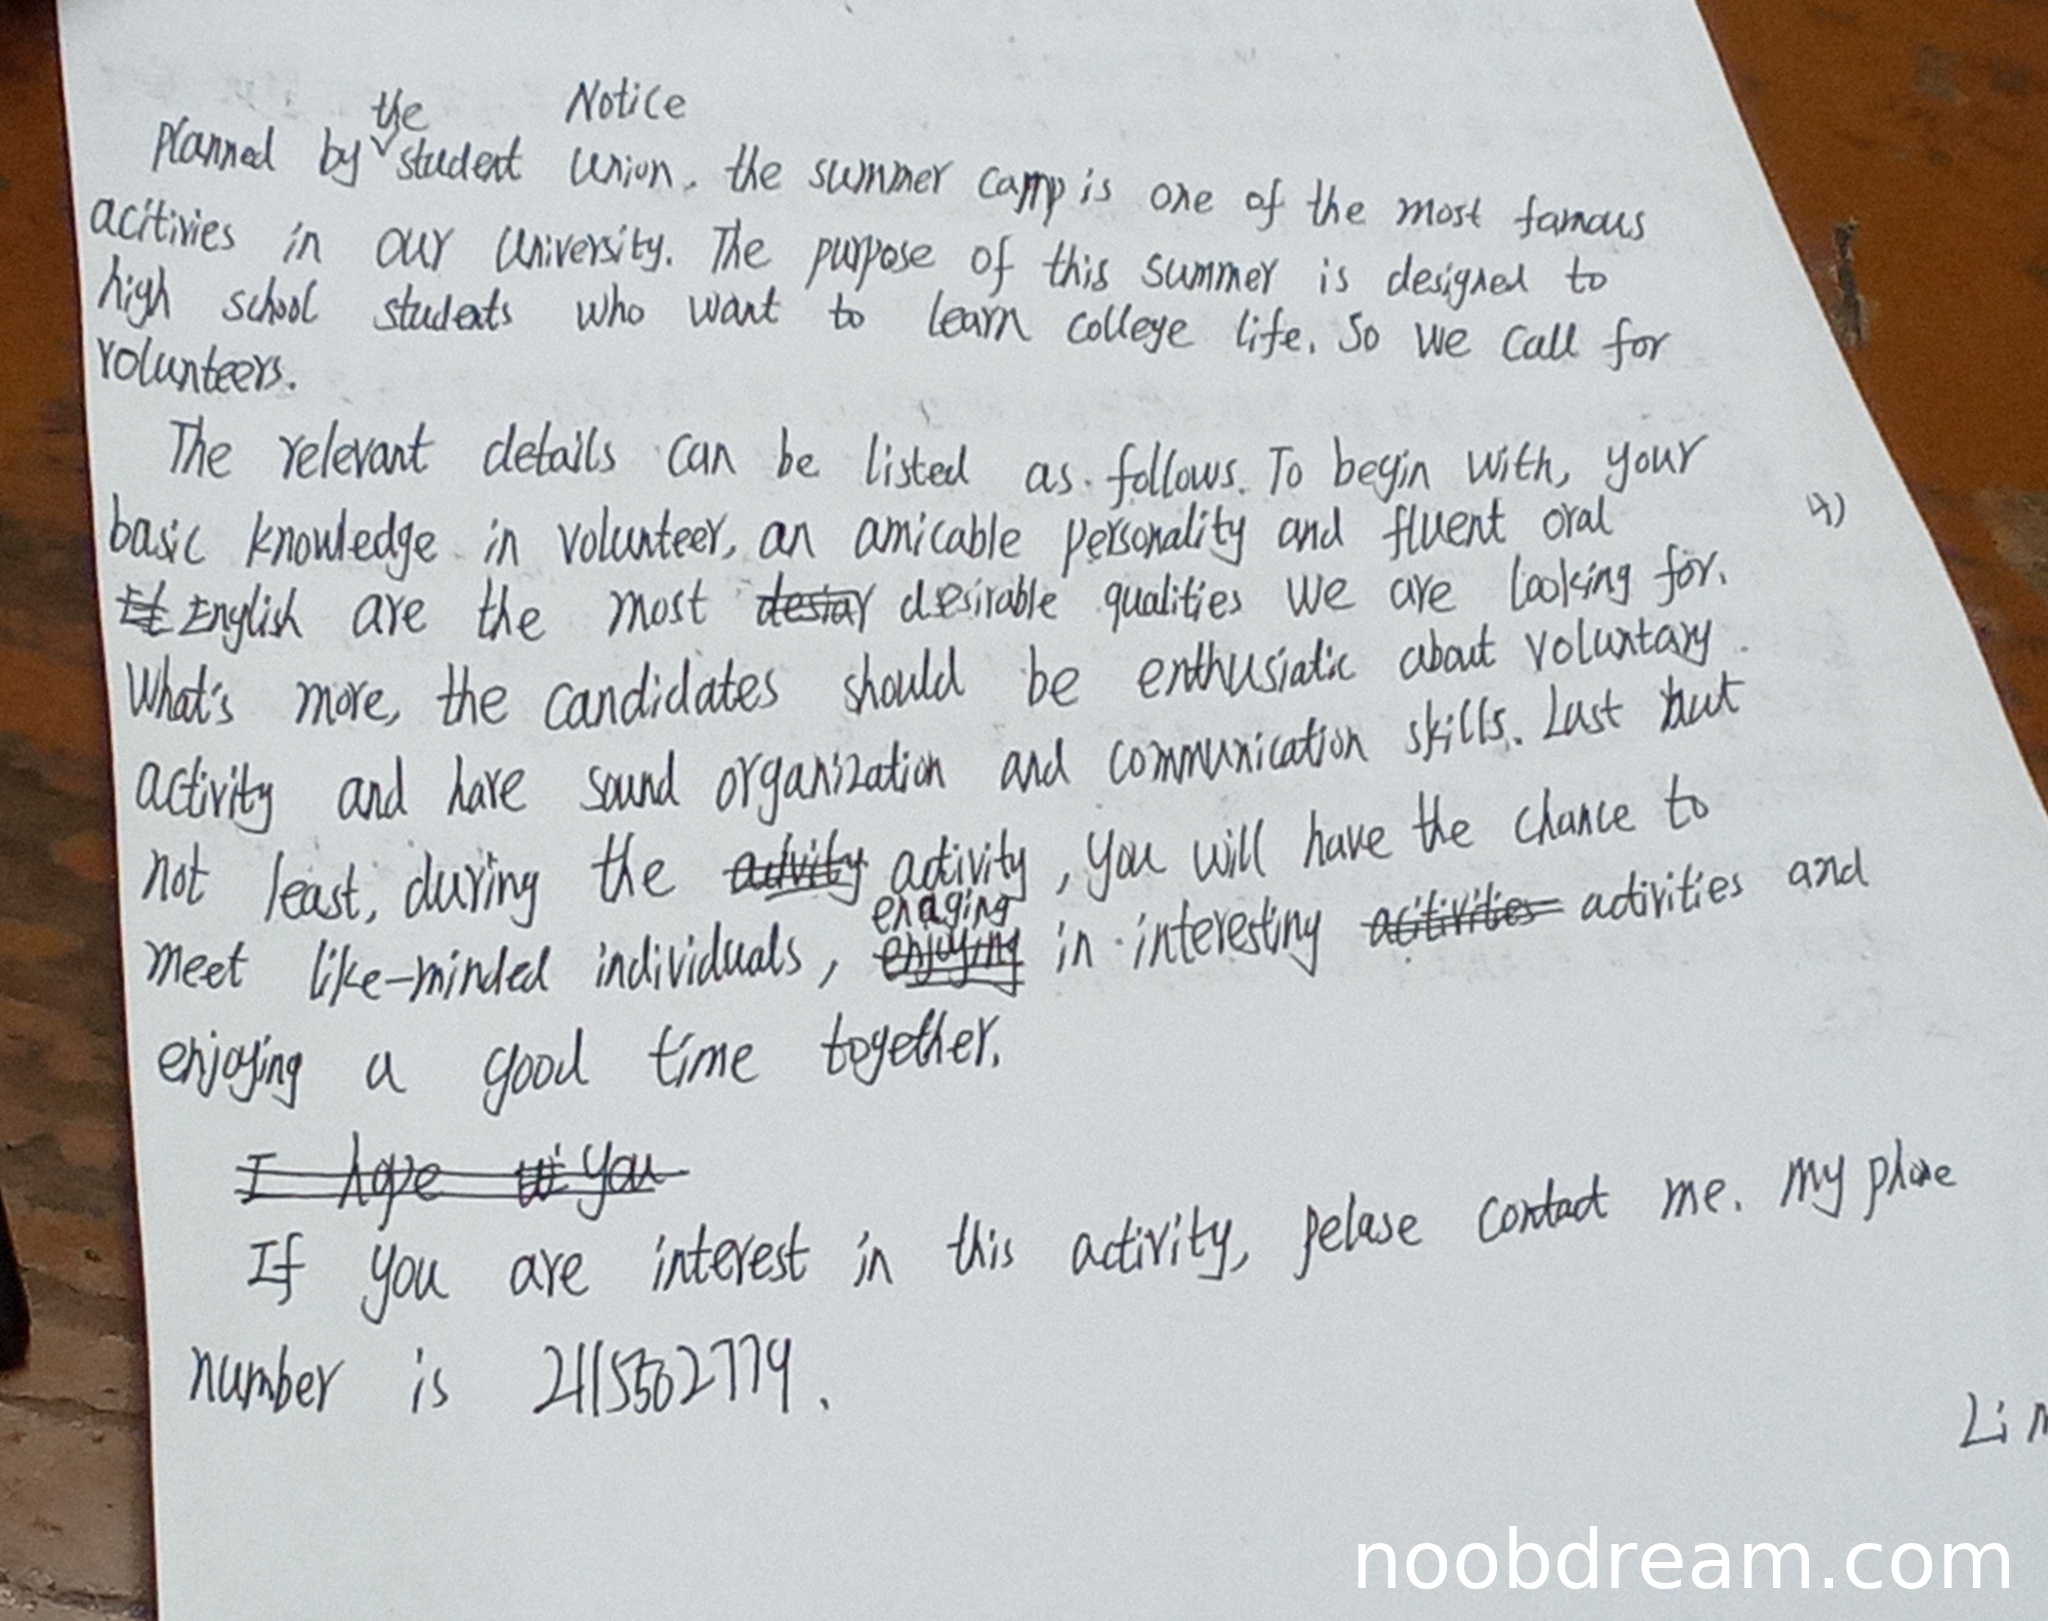 Notice
Planned by the student union, the summer camp is one of the most famous
acitivies in our university. The purpose of this summer is designed to
high school students who want to learn college life. So we call for
volunteers.
The relevant details can be listed as follows. To begin with, your
basic knowledge in volunteer, an amicable personality and fluent oral
English are the most desirable qualities we are looking for.
What's more, the candidates should be enthusiatic about voluntary
activity and have sound organization and communication skills. Last but
not least, during the activity, you will have the chance to
meet like-minded individuals, enaging in interesting activities and
enjoying a good time together.
I hope you
If you are interest in this activity, pelase contact me. My phone
number is
Li
noobdream.com